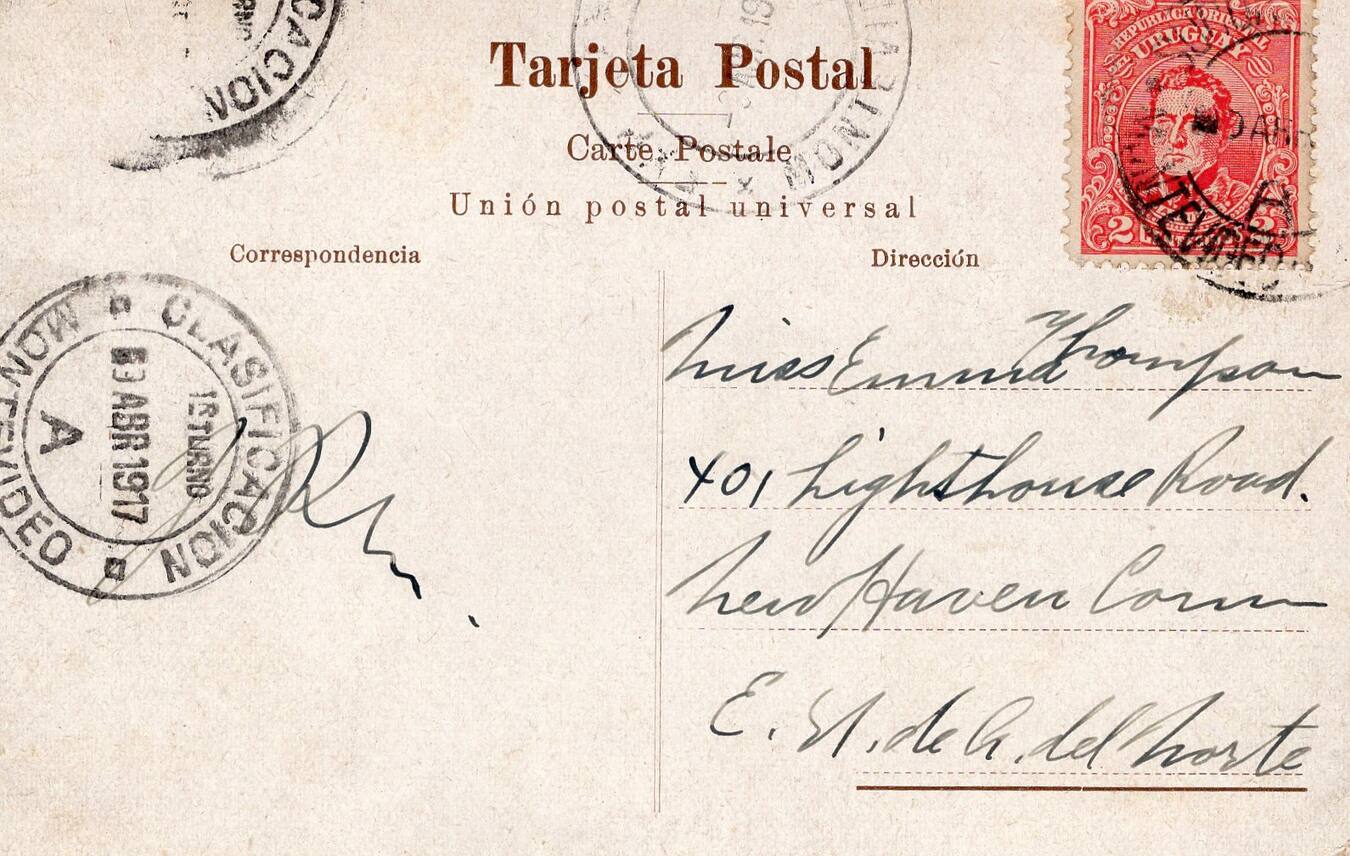 CACION
Tarjeta Postal
Carte Postale
Unión postal universal
Correspondencia
Dirección
REPUBLICA ORIENTAL
DEL URUGUAY
2
2
MONTEVIDEO
CLASIFICACION
MONTEVIDEO
1R TURNO
ABR 1917
A
Miss Emma Thompson
401 Lighthouse Road.
New Haven Conn
E. U. de A. del Norte